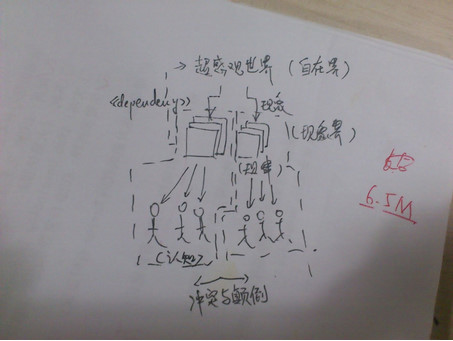 超感观世界（自在界）
<<dependency>>
现象
（现象界）
（规律）
（认知）
冲突与颠倒
6.5M